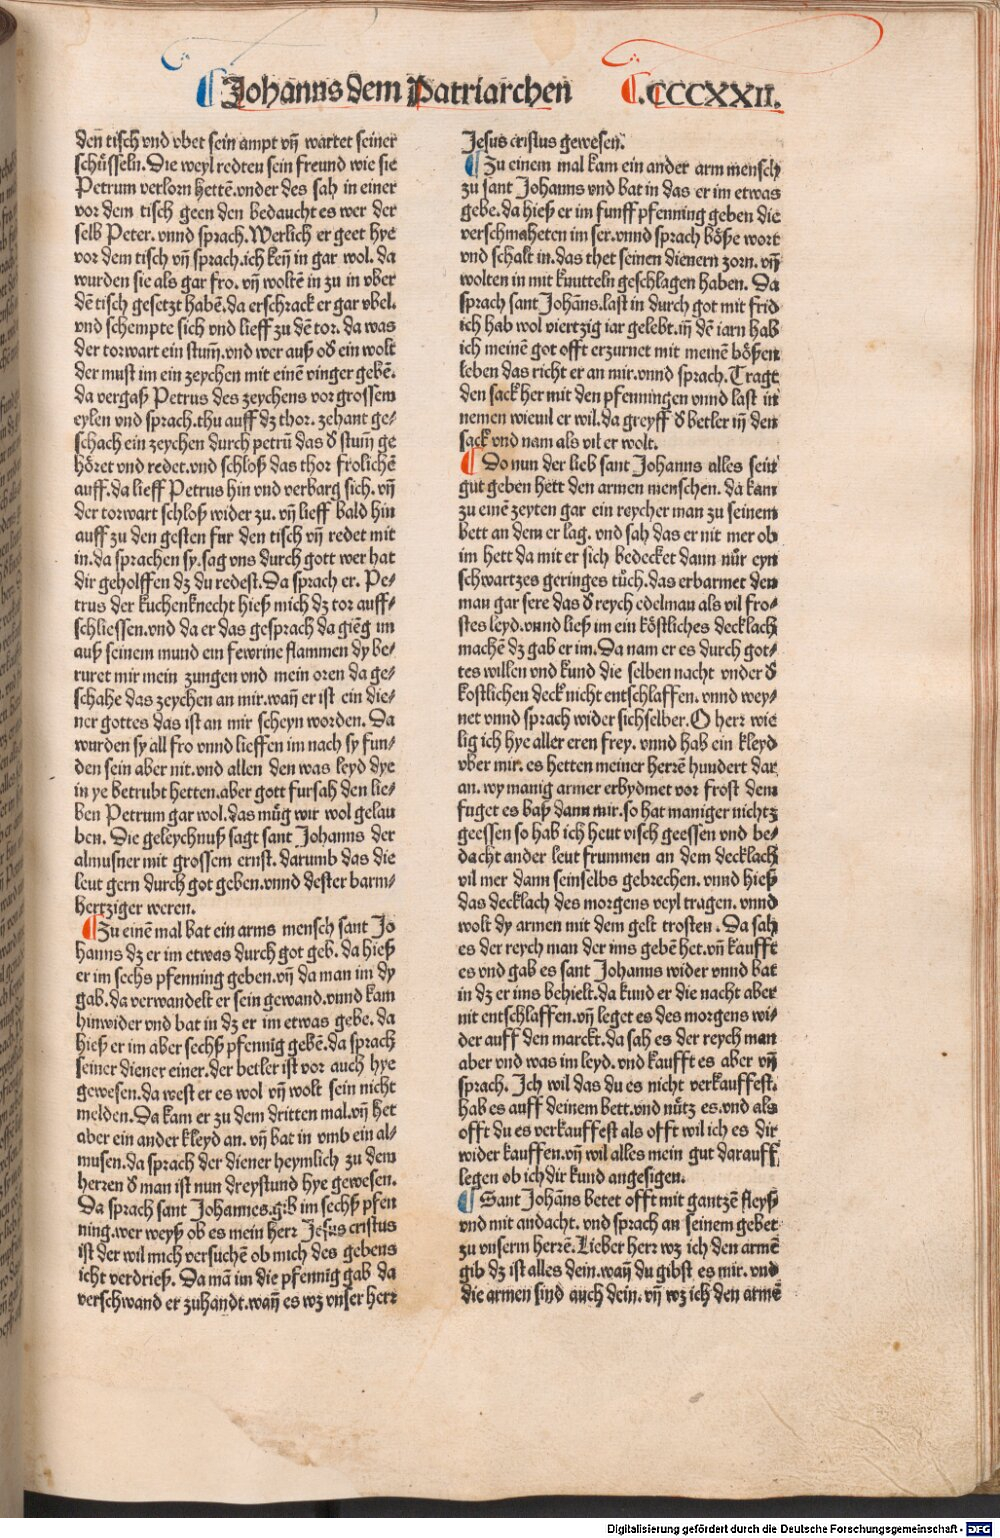 ¶ Johanns dem Patriarchen ¶ .CCCXXII.
den̄ tisch vnd vbet sein ampt vn̄ wartet seiner
schüsseln. Die weyl redten sein freund wie sie
Petrum verlorn hettē. vnder des sah in einer
vor dem tisch geen den bedaucht es wer der
selb Peter. vnnd sprach. Werlich er geet hye
vor dem tisch vn̄ sprach. ich ken̄ in gar wol. da
wurden sie als gar fro. vn̄ woltē in zu in vber
dē tisch gesetzt habē. da erschrack er gar vbel.
vnd schempte sich vnd lieff zu dē tor. da was
der torwart ein stum̄. vnd wer auß oď ein wolt
der must im ein zeychen mit einē vinger gebē.
da vergaß Petrus des zeychens vor grossem
eylen vnd sprach. thu auff dz thor. zehant ge⸗
schach ein zeychen durch petrū das ď stum̄ ge
höret vnd redet. vnd schloß das thor frolichē
auff. da lieff Petrus hin vnd verbarg sich. vn̄
der torwart schloß wider zu. vn̄ lieff bald hin
auff zu den gesten fur den tisch vn̄ redet mit
in. da sprachen sy. sag vns durch gott wer hat
dir geholffen dz du redest. Da sprach er. Pe⸗
trus der kuchenknecht hieß mich dz tor auff⸗
schliessen. vnd da er das gesprach da giēg im
auß seinem mund ein fewrine flammen dy be⸗
ruret mir mein zungen vnd mein oren da ge⸗
schahe das zeychen an mir. wan̄ er ist ein die⸗
ner gottes das ist an mir scheyn worden. Da
wurden sy all fro vnnd lieffen im nach sy fun⸗
den sein aber nit. vnd allen den was leyd dye
in ye betrubt hetten. aber gott fursah den lie⸗
ben Petrum gar wol. das müg wir wol gelau
ben. Die geleychnuß sagt sant Johanns der
almusner mit grossem ernst. darumb das die
leut gern durch got geben. vnnd dester barm⸗
hertziger weren.
¶ Zu einē mal bat ein arms mensch sant Jo
hanns dz er im etwas durch got geb. da hieß
er im sechs pfenning geben. vn̄ da man im dy
gab. da verwandelt er sein gewand. vnnd kam
hinwider vnd bat in dz er im etwas gebe. da
hieß er im aber sechß pfennig gebē. da sprach
seiner diener einer. der betler ist vor auch hye
gewesen. da west er es wol vn̄ wolt sein nicht
melden. Da kam er zu dem dritten mal. vn̄ het
aber ein ander kleyd an. vn̄ bat in vmb ein al⸗
musen. da sprach der diener heymlich zu dem
herren ď man ist nun dreystund hye gewesen.
Da sprach sant Johannes. gib im sechß pfen
ning. wer weyß ob es mein herr Jesus cristus
ist der wil mich versuchē ob mich des gebens
icht verdrieß. Da mā im die pfennig gab da
verschwand er zuhandt. wan̄ es wz vnser herr
Jesus cristus gewesen.
¶ Zu einem mal kam ein ander arm mensch
zu sant Johanns vnd bat in das er im etwas
gebe. da hieß er im funff pfenning geben die
verschmaheten im ser. vnnd sprach böße wort
vnd schalt in. das thet seinen dienern zorn. vn̄
wolten in mit knutteln geschlagen haben. Da
sprach sant Johāns. last in durch got mit frid
ich hab wol viertzig iar gelebt. in̄ dē iarn hab
ich meinē got offt erzurnet mit meinē bößen
leben das richt er an mir. vnnd sprach. Tragt
den sack her mit den pfenningen vnnd last in
nemen wieuil er wil. da greyff ď betler in̄ den
sack vnd nam als vil er wolt.
¶ Do nun der lieb sant Johanns alles sein
gut geben hett den armen menschen. da kam
zu einē zeyten gar ein reycher man zu seinem
bett an dem er lag. vnd sah das er nit mer ob
im hett da mit er sich bedecket dann nür eyn
schwartzes geringes tüch. das erbarmet den
man gar sere das ď reych edelman als vil fro⸗
stes leyd. vnnd ließ im ein köstliches decklach
machē dz gab er im. Da nam er es durch got⸗
tes willen vnd kund die selben nacht vnder ď
kostlichen deck nicht entschlaffen. vnnd wey⸗
net vnnd sprach wider sichselber. O herr wie
lig ich hye aller eren frey. vnnd hab ein kleyd
vber mir. es hetten meiner herrē hundert dar
an. wy manig armer erbydmet vor frost dem
fuget es baß dann mir. so hat maniger nichtz
geessen so hab ich heut visch geessen vnd be⸗
dacht ander leut frummen an dem decklach
vil mer dann seinselbs gebrechen. vnnd hieß
das decklach des morgens veyl tragen. vnnd
wolt dy armen mit dem gelt trosten. Da sah
es der reych man der ims gebē het. vn̄ kaufft
es vnd gab es sant Johanns wider vnnd bat
in dz er ims behielt. da kund er die nacht aber
nit entschlaffen. vn̄ leget es des morgens wi⸗
der auff den marckt. da sah es der reych man
aber vnd was im leyd. vnd kaufft es aber vn̄
sprach. Ich wil das du es nicht verkauffest.
hab es auff deinem bett. vnd nütz es. vnd als
offt du es verkauffest als offt wil ich es dir
wider kauffen. vn̄ wil alles mein gut darauff
legen ob ich dir kund angesigen.
¶ Sant Johāns betet offt mit gantzē fleyß
vnd mit andacht. vnd sprach an seinem gebet
zu vnserm herrē. Lieber herr wz ich den armē
gib dz ist alles dein. wan̄ du gibst es mir. vnd
die armen sind auch dein. vn̄ wz ich den armē
Digitalisierung gefördert durch die Deutsche Forschungsgemeinschaft - DFG